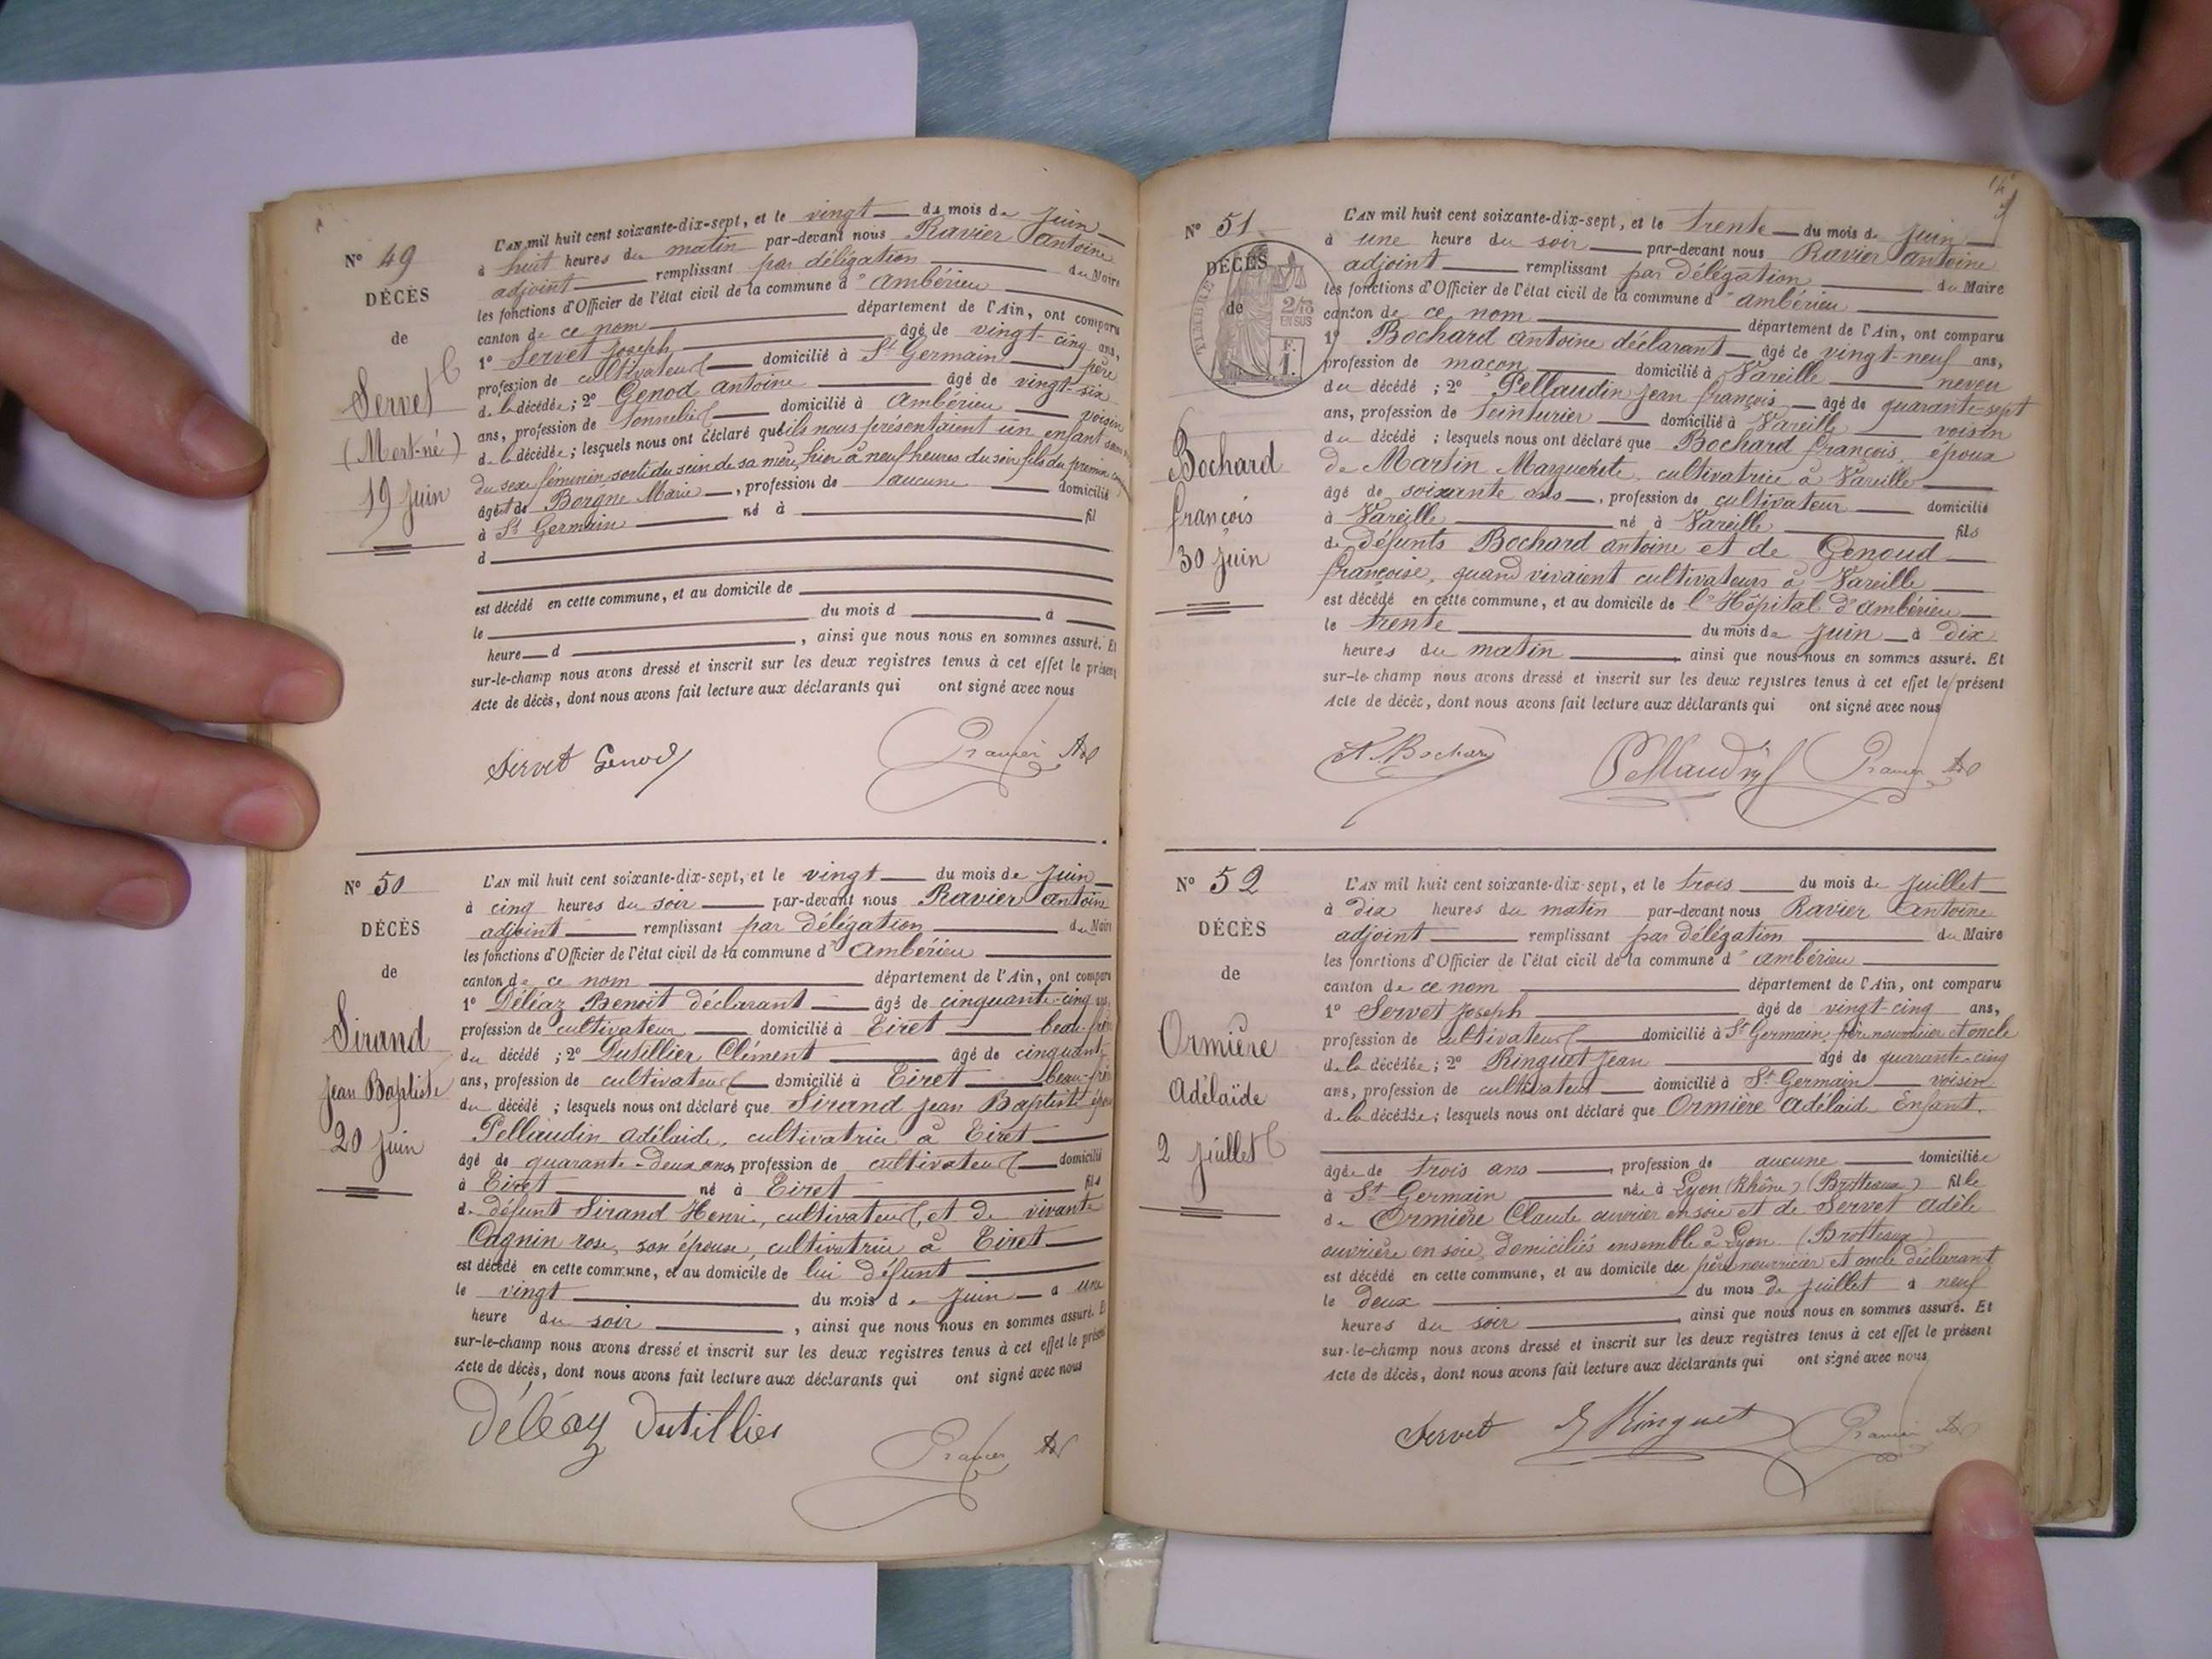 N° 49
DÉCÈS
de
Servet
(Mort-né)
19 juin
L'AN mil huit cent soixante-dix-sept, et le vingt du mois de juin
à huit heures du matin par-devant nous Ravier Antoine
adjoint remplissant par délégation du Maire
les fonctions d'Officier de l'état civil de la commune d' Ambérieu
canton de ce nom département de l'Ain, ont comparu
1° Servet Joseph âgé de vingt-cinq ans,
profession de cultivateur domicilié à St Germain père
de la décédée; 2° Genod Antoine âgé de vingt-six
ans, profession de tonnelier domicilié à Ambérieu voisin
de la décédée; lesquels nous ont déclaré qu'ils nous présentaient un enfant sans
du sexe féminin sorti du sein de sa mère, hier à neuf heures du soir fils du premier
âgé et de Borgne Marie, profession de aucune domicilié
à St Germain né à fil
d
est décédé en cette commune, et au domicile de
le du mois d à
heure d , ainsi que nous nous en sommes assuré. Et
sur-le-champ nous avons dressé et inscrit sur les deux registres tenus à cet effet le présent
Acte de décès, dont nous avons fait lecture aux déclarants qui ont signé avec nous
Servet Genod Ravier
N° 50
DÉCÈS
de
Sirand
Jean Baptiste
20 juin
L'AN mil huit cent soixante-dix-sept, et le vingt du mois de juin
à cinq heures du soir par-devant nous Ravier Antoine
adjoint remplissant par délégation du Maire
les fonctions d'Officier de l'état civil de la commune d' Ambérieu
canton de ce nom département de l'Ain, ont comparu
1° Déléaz Benoit déclarant âgé de cinquante-cinq ans,
profession de cultivateur domicilié à Tiret beau-frère
du décédé; 2° Dutillier Clément âgé de cinquante
ans, profession de cultivateur domicilié à Tiret beau-frère
du décédé; lesquels nous ont déclaré que Sirand Jean Baptiste époux
Pellaudin Adélaïde, cultivatrice à Tiret
âgé de quarante-deux ans, profession de cultivateur domicilié
à Tiret né à Tiret fils
de défunt Sirand Henri, cultivateur, et de vivante
Cagnin rose, son épouse, cultivatrice à Tiret
est décédé en cette commune, et au domicile de lui défunt
le vingt du mois de juin à une
heure du soir , ainsi que nous nous en sommes assuré. Et
sur-le-champ nous avons dressé et inscrit sur les deux registres tenus à cet effet le présent
Acte de décès, dont nous avons fait lecture aux déclarants qui ont signé avec nous
Déléaz Dutillier Ravier
N° 51
DÉCÈS
de
TIMBRE
2/10
EN SUS
F.
1.
Bochard
françois
30 juin
L'AN mil huit cent soixante-dix-sept, et le trente du mois de juin
à une heure du soir par-devant nous Ravier Antoine
adjoint remplissant par délégation du Maire
les fonctions d'Officier de l'état civil de la commune d' ambérieu
canton de ce nom département de l'Ain, ont comparu
1° Bochard antoine déclarant âgé de vingt-neuf ans,
profession de maçon domicilié à Vareille neveu
du décédé; 2° Pellaudin jean françois âgé de quarante-sept
ans, profession de teinturier domicilié à Vareille voisin
du décédé; lesquels nous ont déclaré que Bochard françois, époux
de Martin Marguerite, cultivatrice à Vareille
âgé de soixante ans, profession de cultivateur domicilié
à Vareille né à Vareille fils
de défunts Bochard antoine et de Genoud
françoise, quand vivaient cultivateurs à Vareille
est décédé en cette commune, et au domicile de l'Hôpital d'ambérieu
le trente du mois de juin à dix
heures du matin ainsi que nous nous en sommes assuré. Et
sur-le-champ nous avons dressé et inscrit sur les deux registres tenus à cet effet le présent
Acte de décès, dont nous avons fait lecture aux déclarants qui ont signé avec nous
A. Bochard Pellaudin Ravier
N° 52
DÉCÈS
de
Ormière
Adélaïde
2 juillet
L'AN mil huit cent soixante-dix-sept, et le trois du mois de juillet
à dix heures du matin par-devant nous Ravier Antoine
adjoint remplissant par délégation du Maire
les fonctions d'Officier de l'état civil de la commune d' ambérieu
canton de ce nom département de l'Ain, ont comparu
1° Servet Joseph âgé de vingt-cinq ans,
profession de cultivateur domicilié à St Germain, père nourricier et oncle
de la décédée; 2° Ringuet Jean âgé de quarante-cinq
ans, profession de cultivateur domicilié à St Germain voisin
de la décédée; lesquels nous ont déclaré que Ormière Adélaïde Enfant.
âgée de trois ans, profession de aucune domiciliée
à St Germain née à Lyon (Rhône) (Brotteaux) fille
de Ormière Claude ouvrier en soie et de Servet Adèle
ouvrière en soie, domiciliés ensemble à Lyon (Brotteaux)
est décédé en cette commune, et au domicile du père nourricier et oncle déclarant
le deux du mois de juillet à neuf
heures du soir , ainsi que nous nous en sommes assuré. Et
sur-le-champ nous avons dressé et inscrit sur les deux registres tenus à cet effet le présent
Acte de décès, dont nous avons fait lecture aux déclarants qui ont signé avec nous
Servet Ringuet Ravier